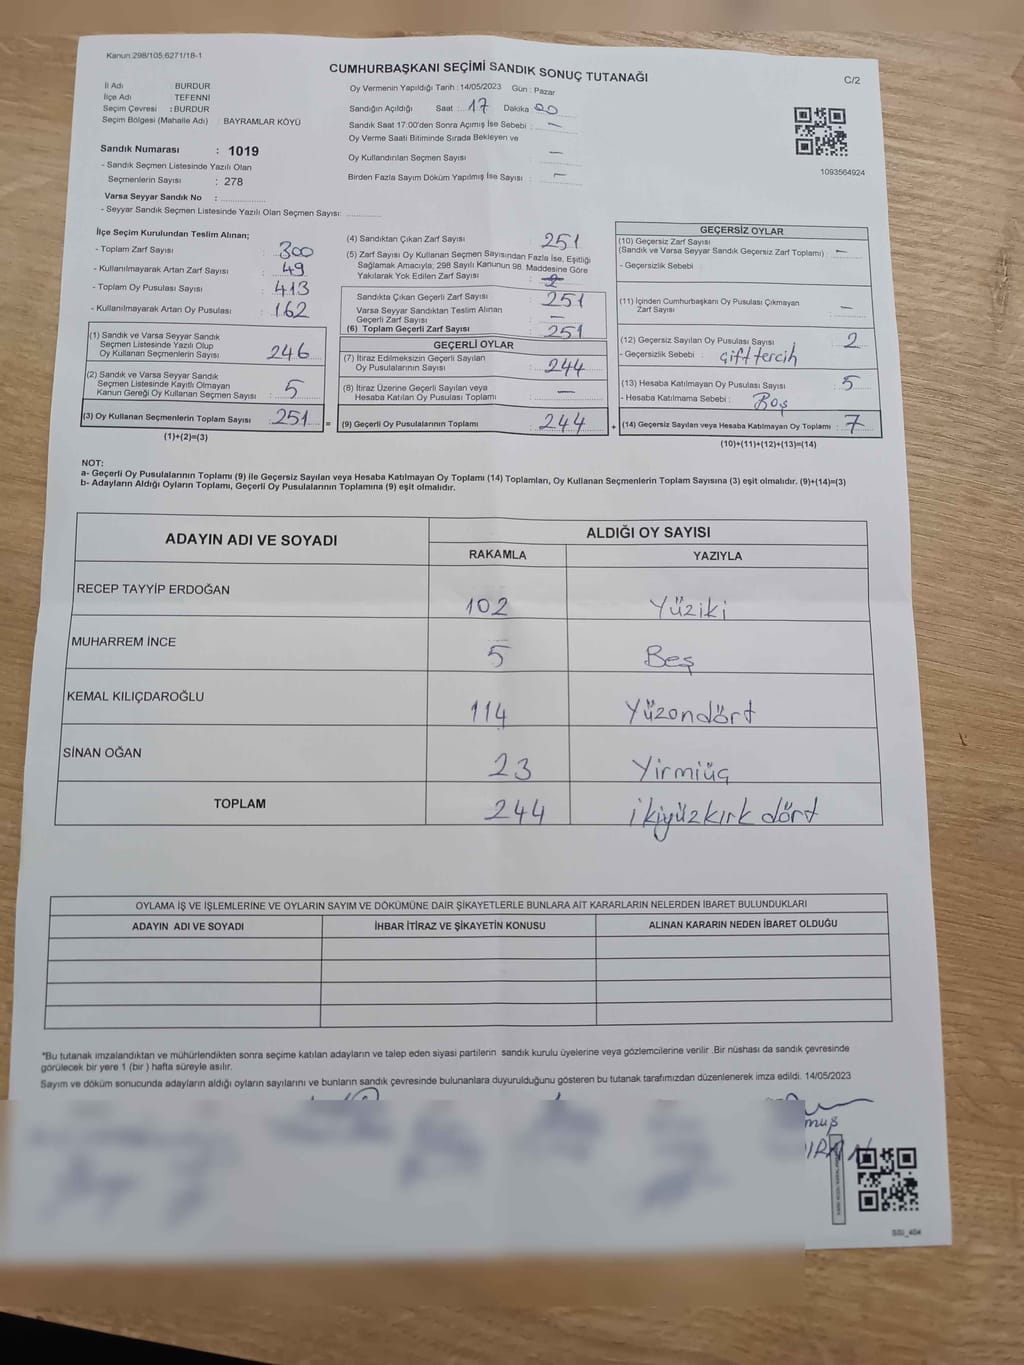 Kanun:298/105;6271/18-1
CUMHURBAŞKANI SEÇİMİ SANDIK SONUÇ TUTANAĞI
C/2
İl Adı BURDUR
İlçe Adı TEFENNİ
Seçim Çevresi : BURDUR
Seçim Bölgesi (Mahalle Adı) : BAYRAMLAR KÖYÜ
Sandık Numarası : 1019
- Sandık Seçmen Listesinde Yazılı Olan
Seçmenlerin Sayısı : 278
Varsa Seyyar Sandık No :
- Seyyar Sandık Seçmen Listesinde Yazılı Olan Seçmen Sayısı:
Oy Vermenin Yapıldığı Tarih : 14/05/2023 Gün : Pazar
Sandığın Açıldığı Saat : 17 Dakika 00
Sandık Saat 17:00'den Sonra Açımış İse Sebebi : —
Oy Verme Saati Bitiminde Sırada Bekleyen ve
Oy Kullandırılan Seçmen Sayısı —
Birden Fazla Sayım Döküm Yapılmış İse Sayısı : —
1093564924
İlçe Seçim Kurulundan Teslim Alınan;
- Toplam Zarf Sayısı : 300
- Kullanılmayarak Artan Zarf Sayısı : 49
- Toplam Oy Pusulası Sayısı : 413
- Kullanılmayarak Artan Oy Pusulası : 162
(1) Sandık ve Varsa Seyyar Sandık
Seçmen Listesinde Yazılı Olup
Oy Kullanan Seçmenlerin Sayısı 246
(2) Sandık ve Varsa Seyyar Sandık
Seçmen Listesinde Kayıtlı Olmayan
Kanun Gereği Oy Kullanan Seçmen Sayısı : 5
(3) Oy Kullanan Seçmenlerin Toplam Sayısı : 251
(1)+(2)=(3)
(4) Sandıktan Çıkan Zarf Sayısı : 251
(5) Zarf Sayısı Oy Kullanan Seçmen Sayısından Fazla İse, Eşitliği
Sağlamak Amacıyla; 298 Sayılı Kanunun 98. Maddesine Göre
Yakılarak Yok Edilen Zarf Sayısı :
Sandıkta Çıkan Geçerli Zarf Sayısı : 251
Varsa Seyyar Sandıktan Teslim Alınan
Geçerli Zarf Sayısı : —
(6) Toplam Geçerli Zarf Sayısı : 251
GEÇERLİ OYLAR
(7) İtiraz Edilmeksizin Geçerli Sayılan
Oy Pusulalarının Sayısı : 244
(8) İtiraz Üzerine Geçerli Sayılan veya
Hesaba Katılan Oy Pusulası Toplamı : —
= (9) Geçerli Oy Pusulalarının Toplamı : 244
GEÇERSİZ OYLAR
(10) Geçersiz Zarf Sayısı
(Sandık ve Varsa Seyyar Sandık Geçersiz Zarf Toplamı) : —
- Geçersizlik Sebebi :
(11) İçinden Cumhurbaşkanı Oy Pusulası Çıkmayan
Zarf Sayısı : —
(12) Geçersiz Sayılan Oy Pusulası Sayısı : 2
- Geçersizlik Sebebi : çift tercih
(13) Hesaba Katılmayan Oy Pusulası Sayısı : 5
- Hesaba Katılmama Sebebi : Boş
+ (14) Geçersiz Sayılan veya Hesaba Katılmayan Oy Toplamı : 7
(10)+(11)+(12)+(13)=(14)
NOT:
a- Geçerli Oy Pusulalarının Toplamı (9) ile Geçersiz Sayılan veya Hesaba Katılmayan Oy Toplamı (14) Toplamları, Oy Kullanan Seçmenlerin Toplam Sayısına (3) eşit olmalıdır. (9)+(14)=(3)
b- Adayların Aldığı Oyların Toplamı, Geçerli Oy Pusulalarının Toplamına (9) eşit olmalıdır.
ADAYIN ADI VE SOYADI
ALDIĞI OY SAYISI
RAKAMLA YAZIYLA
RECEP TAYYİP ERDOĞAN 102 Yüziki
MUHARREM İNCE 5 Beş
KEMAL KILIÇDAROĞLU 114 Yüzondört
SİNAN OĞAN 23 Yirmiüç
TOPLAM 244 ikiyüzkırk dört
OYLAMA İŞ VE İŞLEMLERİNE VE OYLARIN SAYIM VE DÖKÜMÜNE DAİR ŞİKAYETLERLE BUNLARA AİT KARARLARIN NELERDEN İBARET BULUNDUKLARI
ADAYIN ADI VE SOYADI İHBAR İTİRAZ VE ŞİKAYETİN KONUSU ALINAN KARARIN NEDEN İBARET OLDUĞU
*Bu tutanak imzalandıktan ve mühürlendikten sonra seçime katılan adayların ve talep eden siyasi partilerin sandık kurulu üyelerine veya gözlemcilerine verilir .Bir nüshası da sandık çevresinde
görülecek bir yere 1 (bir ) hafta süreyle asılır.
Sayım ve döküm sonucunda adayların aldığı oyların sayılarını ve bunların sandık çevresinde bulunanlara duyurulduğunu gösteren bu tutanak tarafımızdan düzenlenerek imza edildi. 14/05/2023
muş